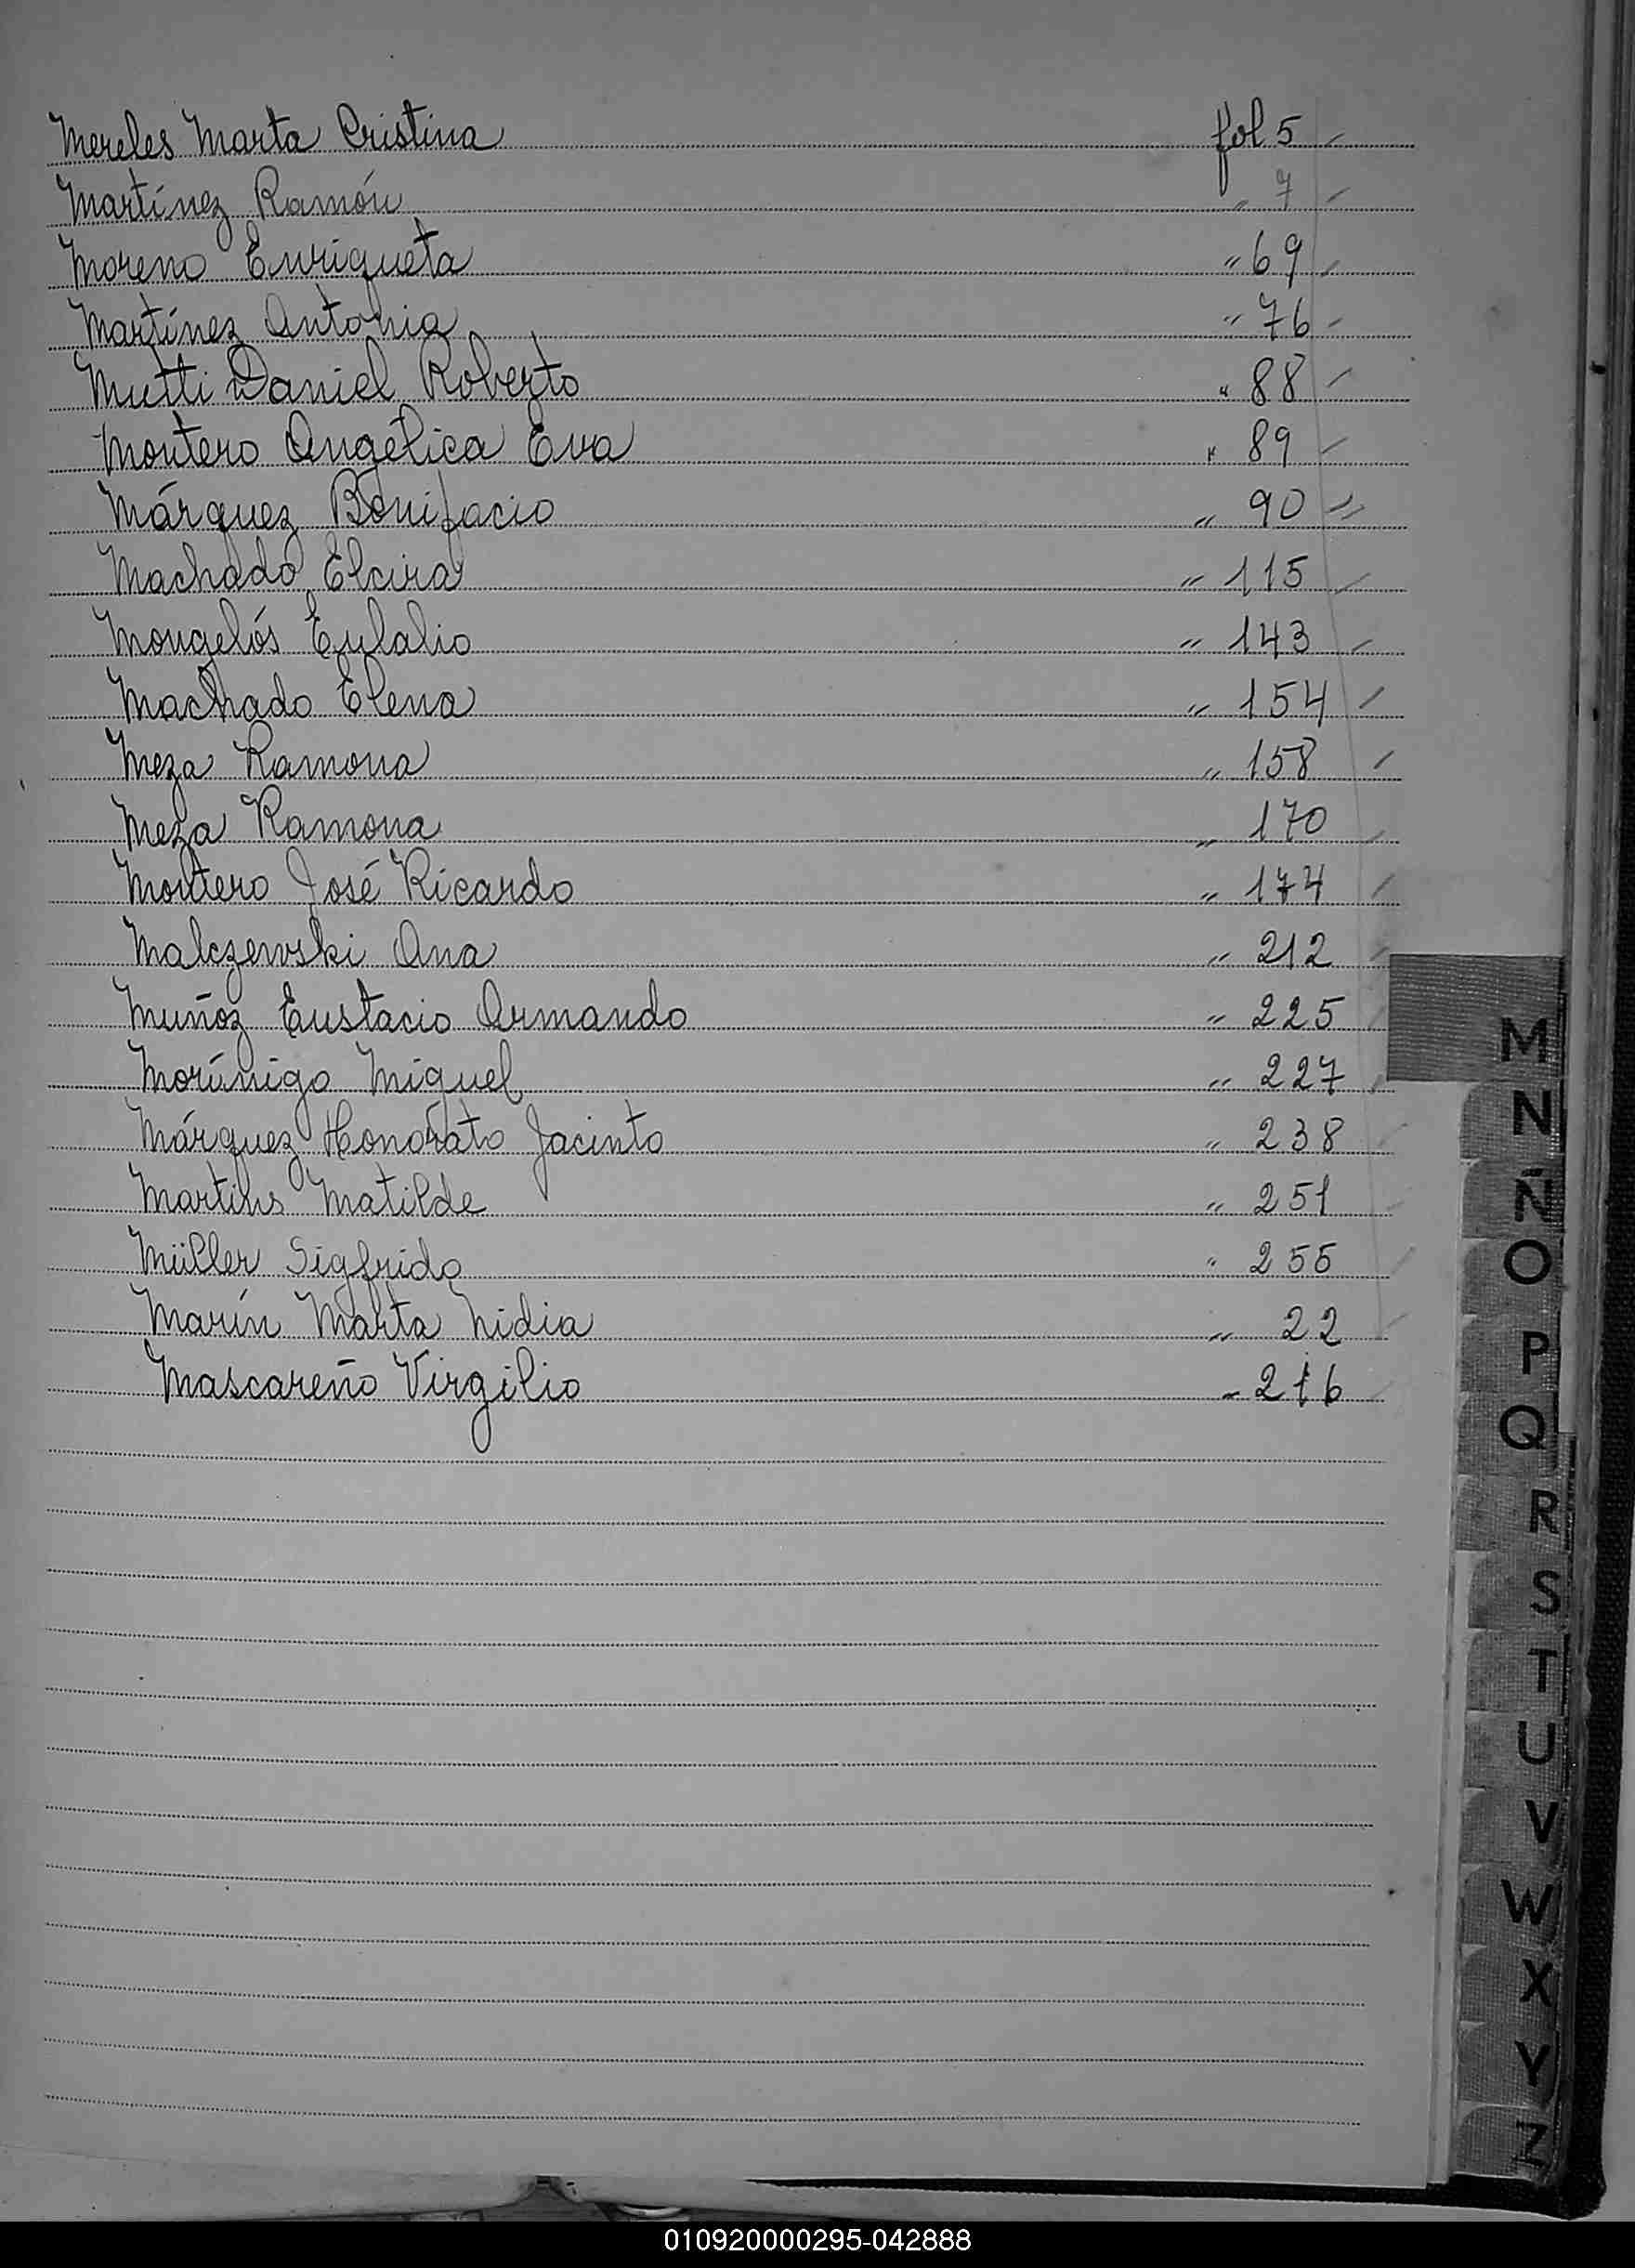 Mereles Marta Cristina fol 5
Martínez Ramón " 7
Moreno Enriqueta " 69
Martínez Antonia " 76
Mutti Daniel Roberto " 88
Montero Angélica Eva " 89
Márquez Bonifacio " 90
Machado Elcira " 115
Mongelós Eulalio " 143
Machado Elena " 154
Meza Ramona " 158
Meza Ramona " 170
Montero José Ricardo " 174
Malczewski Ana " 212
Muñoz Eustacio Armando " 225
Morínigo Miguel " 227
Márquez Honorato Jacinto " 238
Martins Matilde " 251
Müller Sigfrido " 255
Marín Marta Lidia " 22
Mascareño Virgilio " 216
M
N
Ñ
O
P
Q
R
S
T
U
V
W
X
Y
Z
010920000295-042888